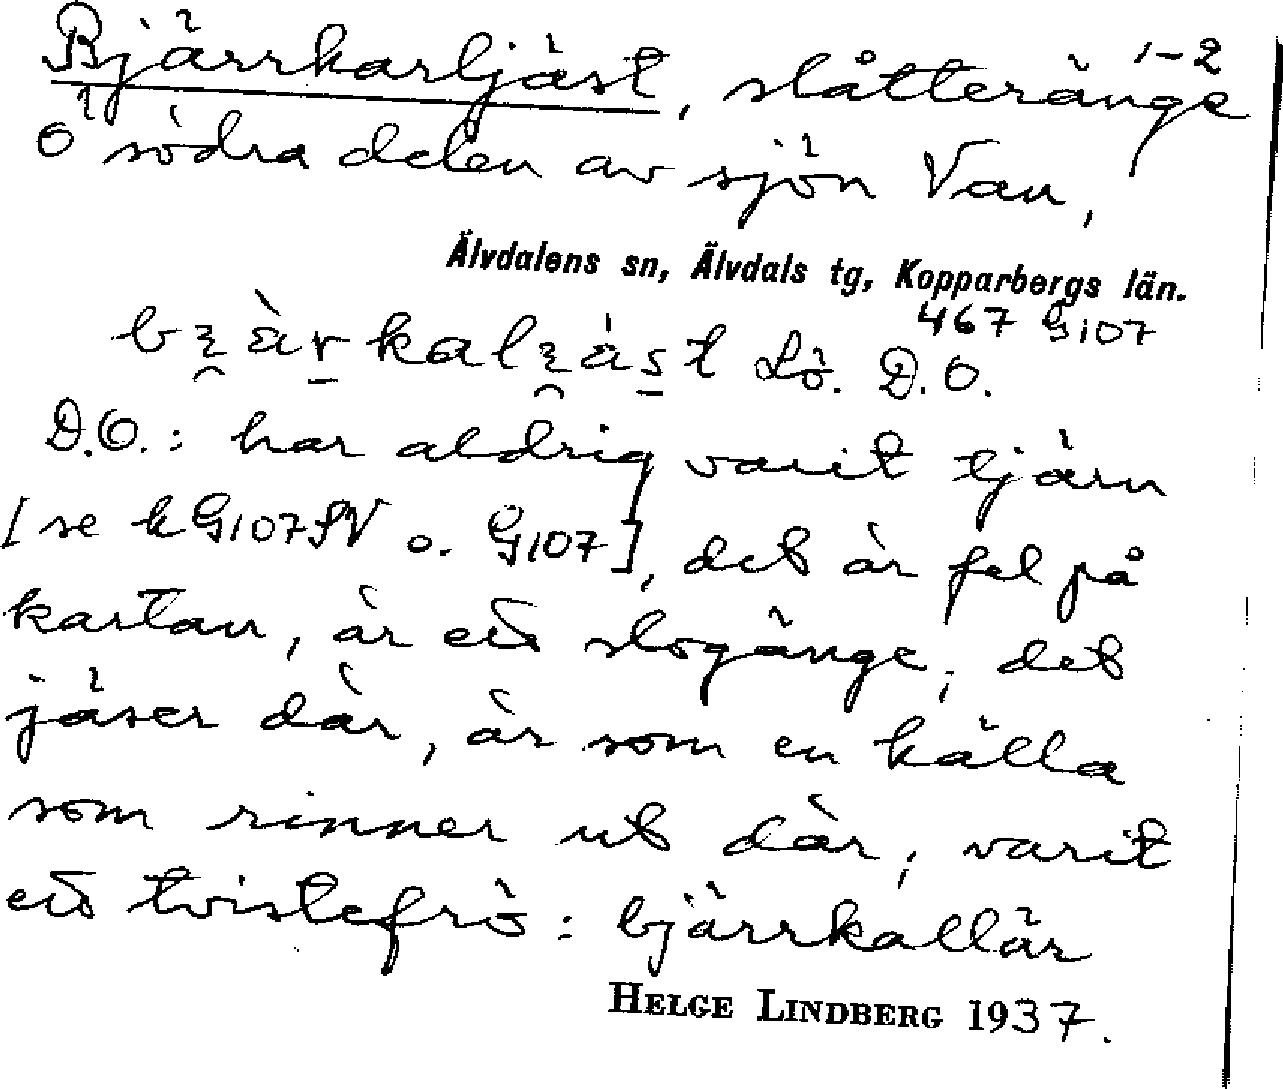 Bjärrkarljäst, slåtteränge 1-2
i södra delen av sjön Van,
Älvdalens sn, Älvdals tg, Kopparbergs län.
467 G107
Lö. D.O.
D.O.: har aldrig varit tjärn
[se k G107SV o. G107], det är fel på
kartan, är ett slogänge; det
jäser där, är som en källa
som rinner ut där; varit
ett tvistefrö: bjärrkallär
HELGE LINDBERG 1937.